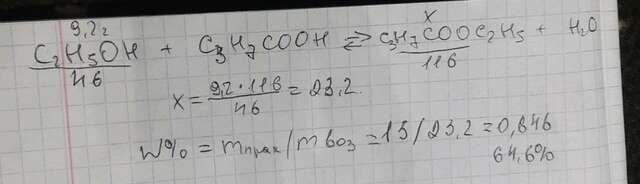 9,2г x
C₂H₅OH + C₃H₇COOH ⇌ C₃H₇COOC₂H₅ + H₂O
46 116
x = 9,2·116/46 = 23,2.
W% = mпрак/mвоз = 15/23,2 = 0,646
64,6%